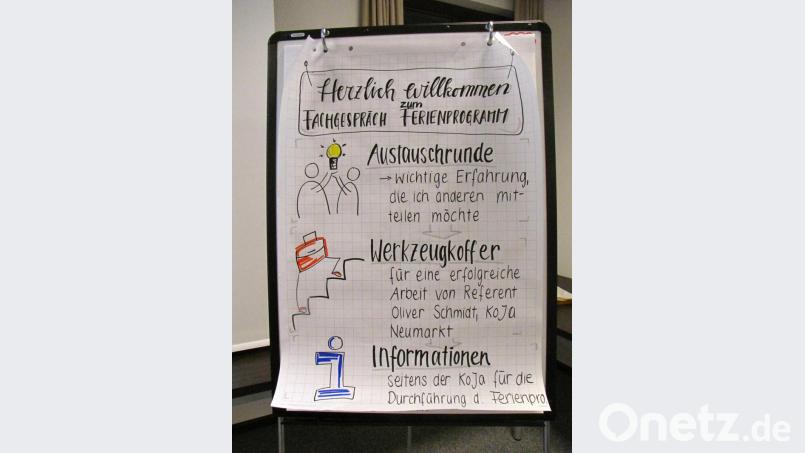 Herzlich willkommen
zum
FACHGESPRÄCH FERIENPROGRAMM
Austauschrunde
→ wichtige Erfahrung,
die ich anderen mit-
teilen möchte
Werkzeugkoffer
für eine erfolgreiche
Arbeit von Referent
Oliver Schmidt, KoJa
Neumarkt
Informationen
seitens der KoJa für die
Durchführung d. Ferienpro
Onetz.de